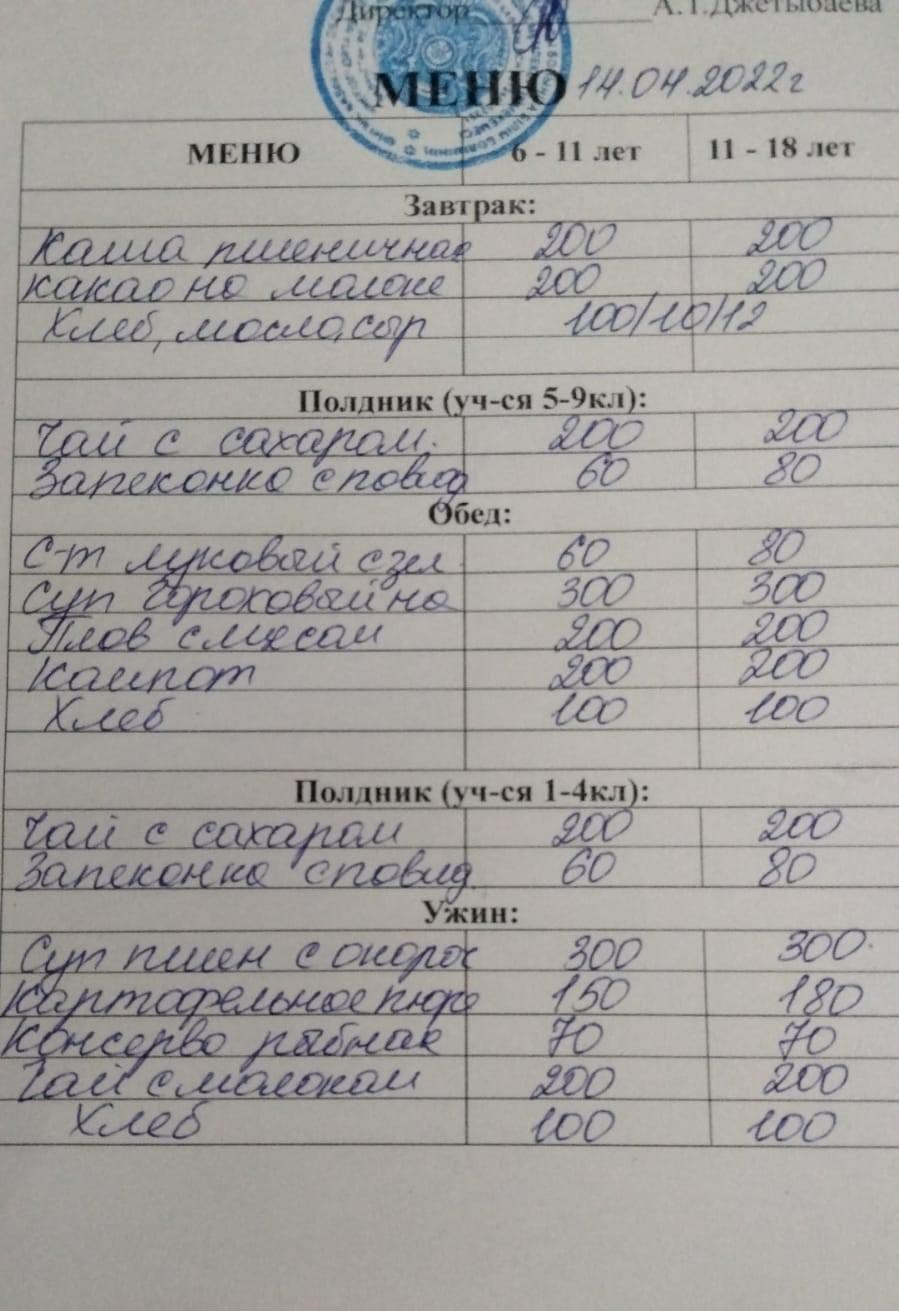 Директор А.Т.Джетыбаева
МЕНЮ 14.04.2022г
МЕНЮ 6 - 11 лет 11 - 18 лет
Завтрак:
Каша пшеничная 200 200
какао на молоке 200 200
Хлеб, масло, сыр 100/10/12
Полдник (уч-ся 5-9кл):
Чай с сахаром. 200 200
Запеканка с повид 60 80
Обед:
С-т луковый с зел 60 80
Суп гороховый на 300 300
Плов с мясом 200 200
Компот 200 200
Хлеб 100 100
Полдник (уч-ся 1-4кл):
Чай с сахаром 200 200
Запеканка с повид 60 80
Ужин:
Суп пшен с окороч 300 300.
Картофельное пюре 150 180
Консерва рыбная 70 70
Чай с молоком 200 200
Хлеб 100 100